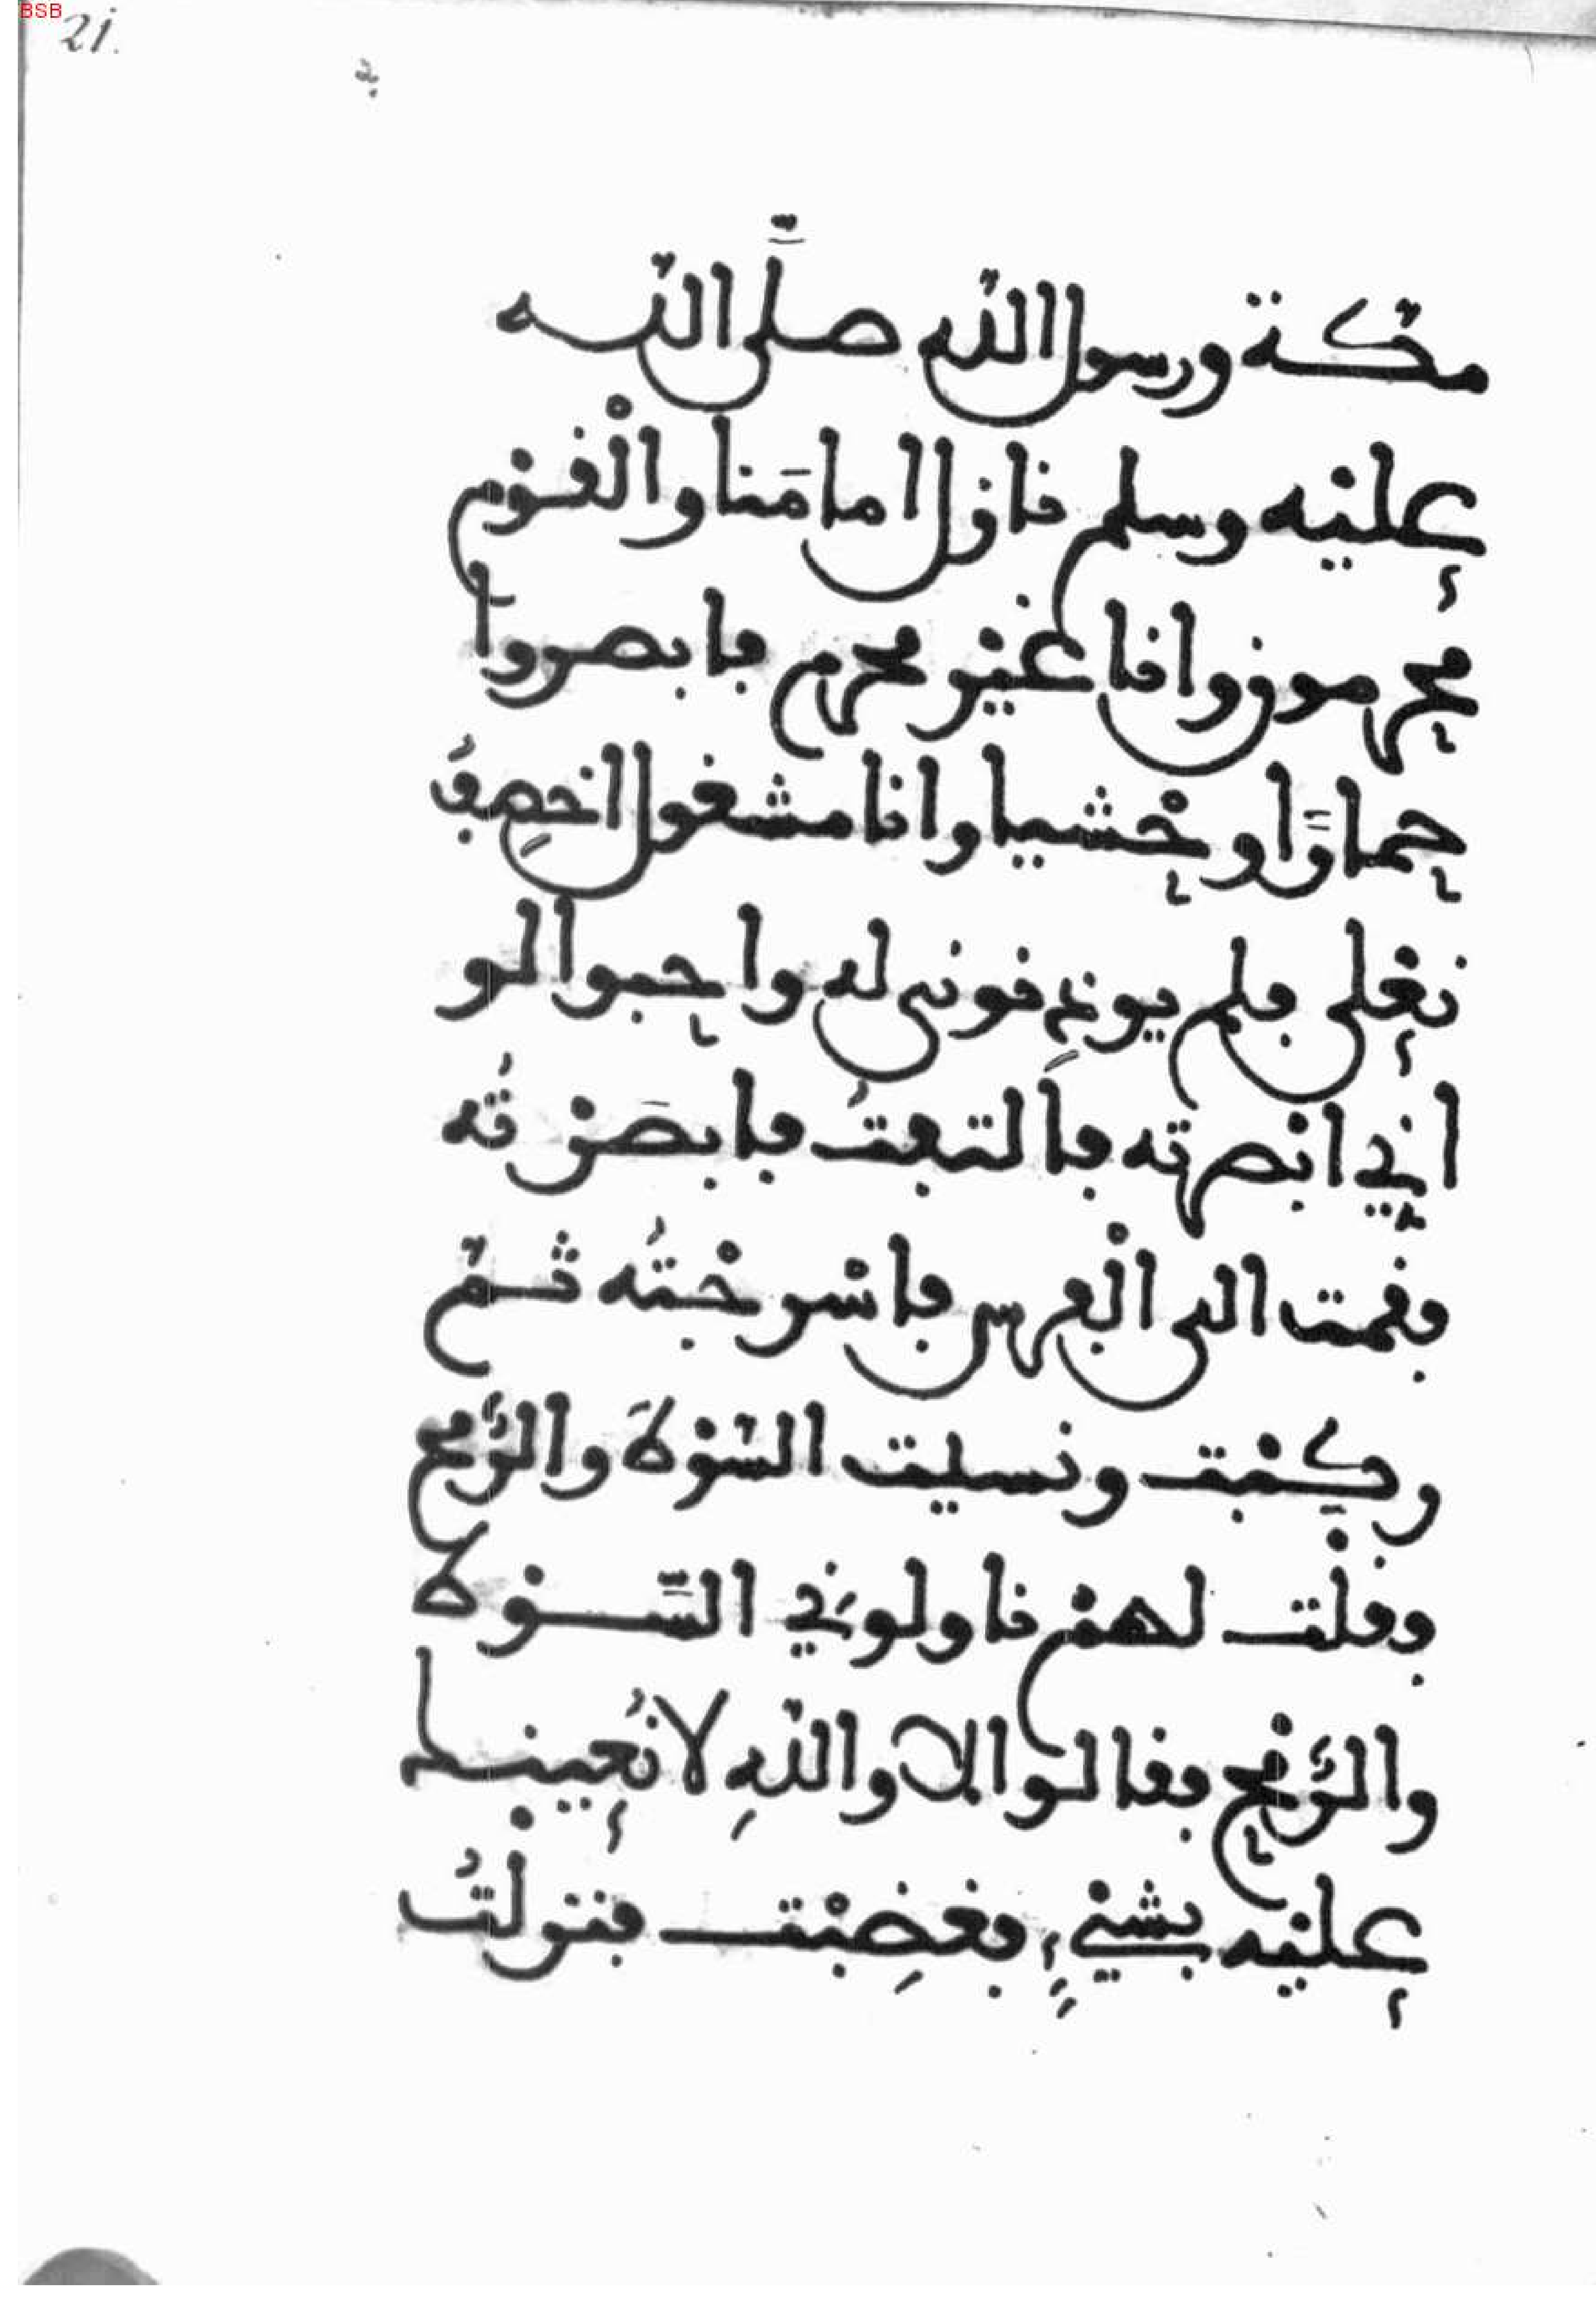 BSB
21.
مكّة ورسول اللّه صلَّى اللّه
عليْه وسلم نازل امامَنا والْقوْم
محرمون وانا غيْر محرم فابصروا
حمارًا وحْشيا وانا مشغول اخصِفُ
نعْلى فلم يوذنونى له واحبوا لو
اني ابْصرته فالتفتُّ فابصَرْتُه
فقمت الى الْفرس فاسْرجْتُه ثمّ
ركبْت ونسيت السّوْط والرُّمح
فقلْت لهمْ ناولوني السَّوْط
والرُّمْح فقالوا لا واللّهِ لا نُعِينك
عليْه بشيْءٍ فغضِبْت فنزلْتُ